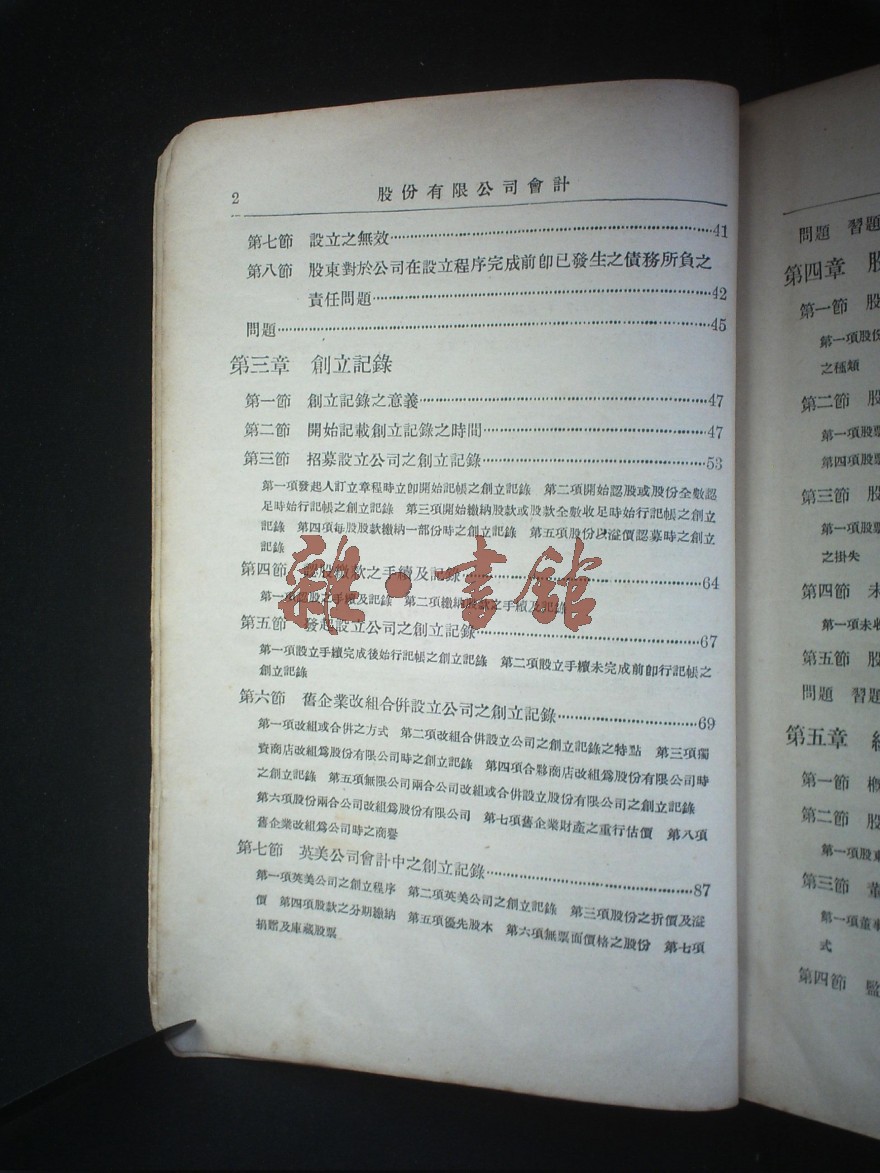 2
股份有限公司會計
第七節 設立之無效……41
第八節 股東對於公司在設立程序完成前卽已發生之債務所負之
責任問題……42
問題……45
第三章 創立記錄
第一節 創立記錄之意義……47
第二節 開始記載創立記錄之時間……47
第三節 招募設立公司之創立記錄……53
第一項發起人訂立章程時立卽開始記帳之創立記錄 第二項開始認股或股份全數認
足時始行記帳之創立記錄 第三項開始繳納股款或股款全數收足時始行記帳之創立
記錄 第四項每股股款繳納一部份時之創立記錄 第五項股份以溢價認募時之創立
記錄
第四節 認股繳款之手續及記錄……64
第一項認股之手續及記錄 第二項繳納股款之手續及記錄
第五節 發起設立公司之創立記錄……67
第一項設立手續完成後始行記帳之創立記錄 第二項設立手續未完成前卽行記帳之
創立記錄
第六節 舊企業改組合併設立公司之創立記錄……69
第一項改組或合併之方式 第二項改組合併設立公司之創立記錄之特點 第三項獨
資商店改組爲股份有限公司時之創立記錄 第四項合夥商店改組爲股份有限公司時
之創立記錄 第五項無限公司兩合公司改組或合併設立股份有限公司之創立記錄
第六項股份兩合公司改組爲股份有限公司 第七項舊企業財產之重行估價 第八項
舊企業改組爲公司時之商譽
第七節 英美公司會計中之創立記錄……87
第一項英美公司之創立程序 第二項英美公司之創立記錄 第三項股份之折價及溢
價 第四項股款之分期繳納 第五項優先股本 第六項無票面價格之股份 第七項
捐贈及庫藏股票
雜·書館
問題 習題
第四章 股
第一節 股
第一項股份
之種類
第二節 股
第一項股票
第四項股票
第三節 股
第一項股票
之掛失
第四節 未
第一項未收
第五節 股
問題 習題
第五章
第一節 概
第二節 股
第一項股東
第三節 董
第一項董事
式
第四節 監